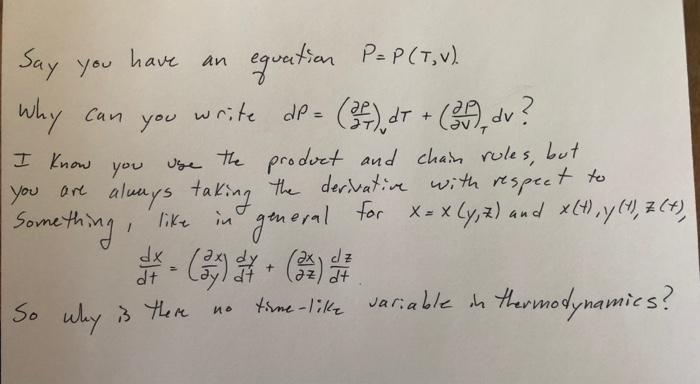 Say you have an equation P = P(T,V).
Why can you write dP = (∂P/∂T)_V dT + (∂P/∂V)_T dV?
I know you use the product and chain rules, but
you are always taking the derivative with respect to
something, like in general for x = x(y,z) and x(t), y(t), z(t),
dx/dt = (∂x/∂y) dy/dt + (∂x/∂z) dz/dt
So why is there no time-like variable in thermodynamics?